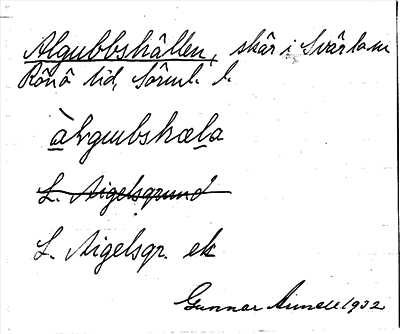 Algubbshällen, skär i Svärtam
Rönö hd, Sörml. l.
àlvgubshæla
L. Aigelsgrund
L. Aigelsgr. ek
Gunnar 1932